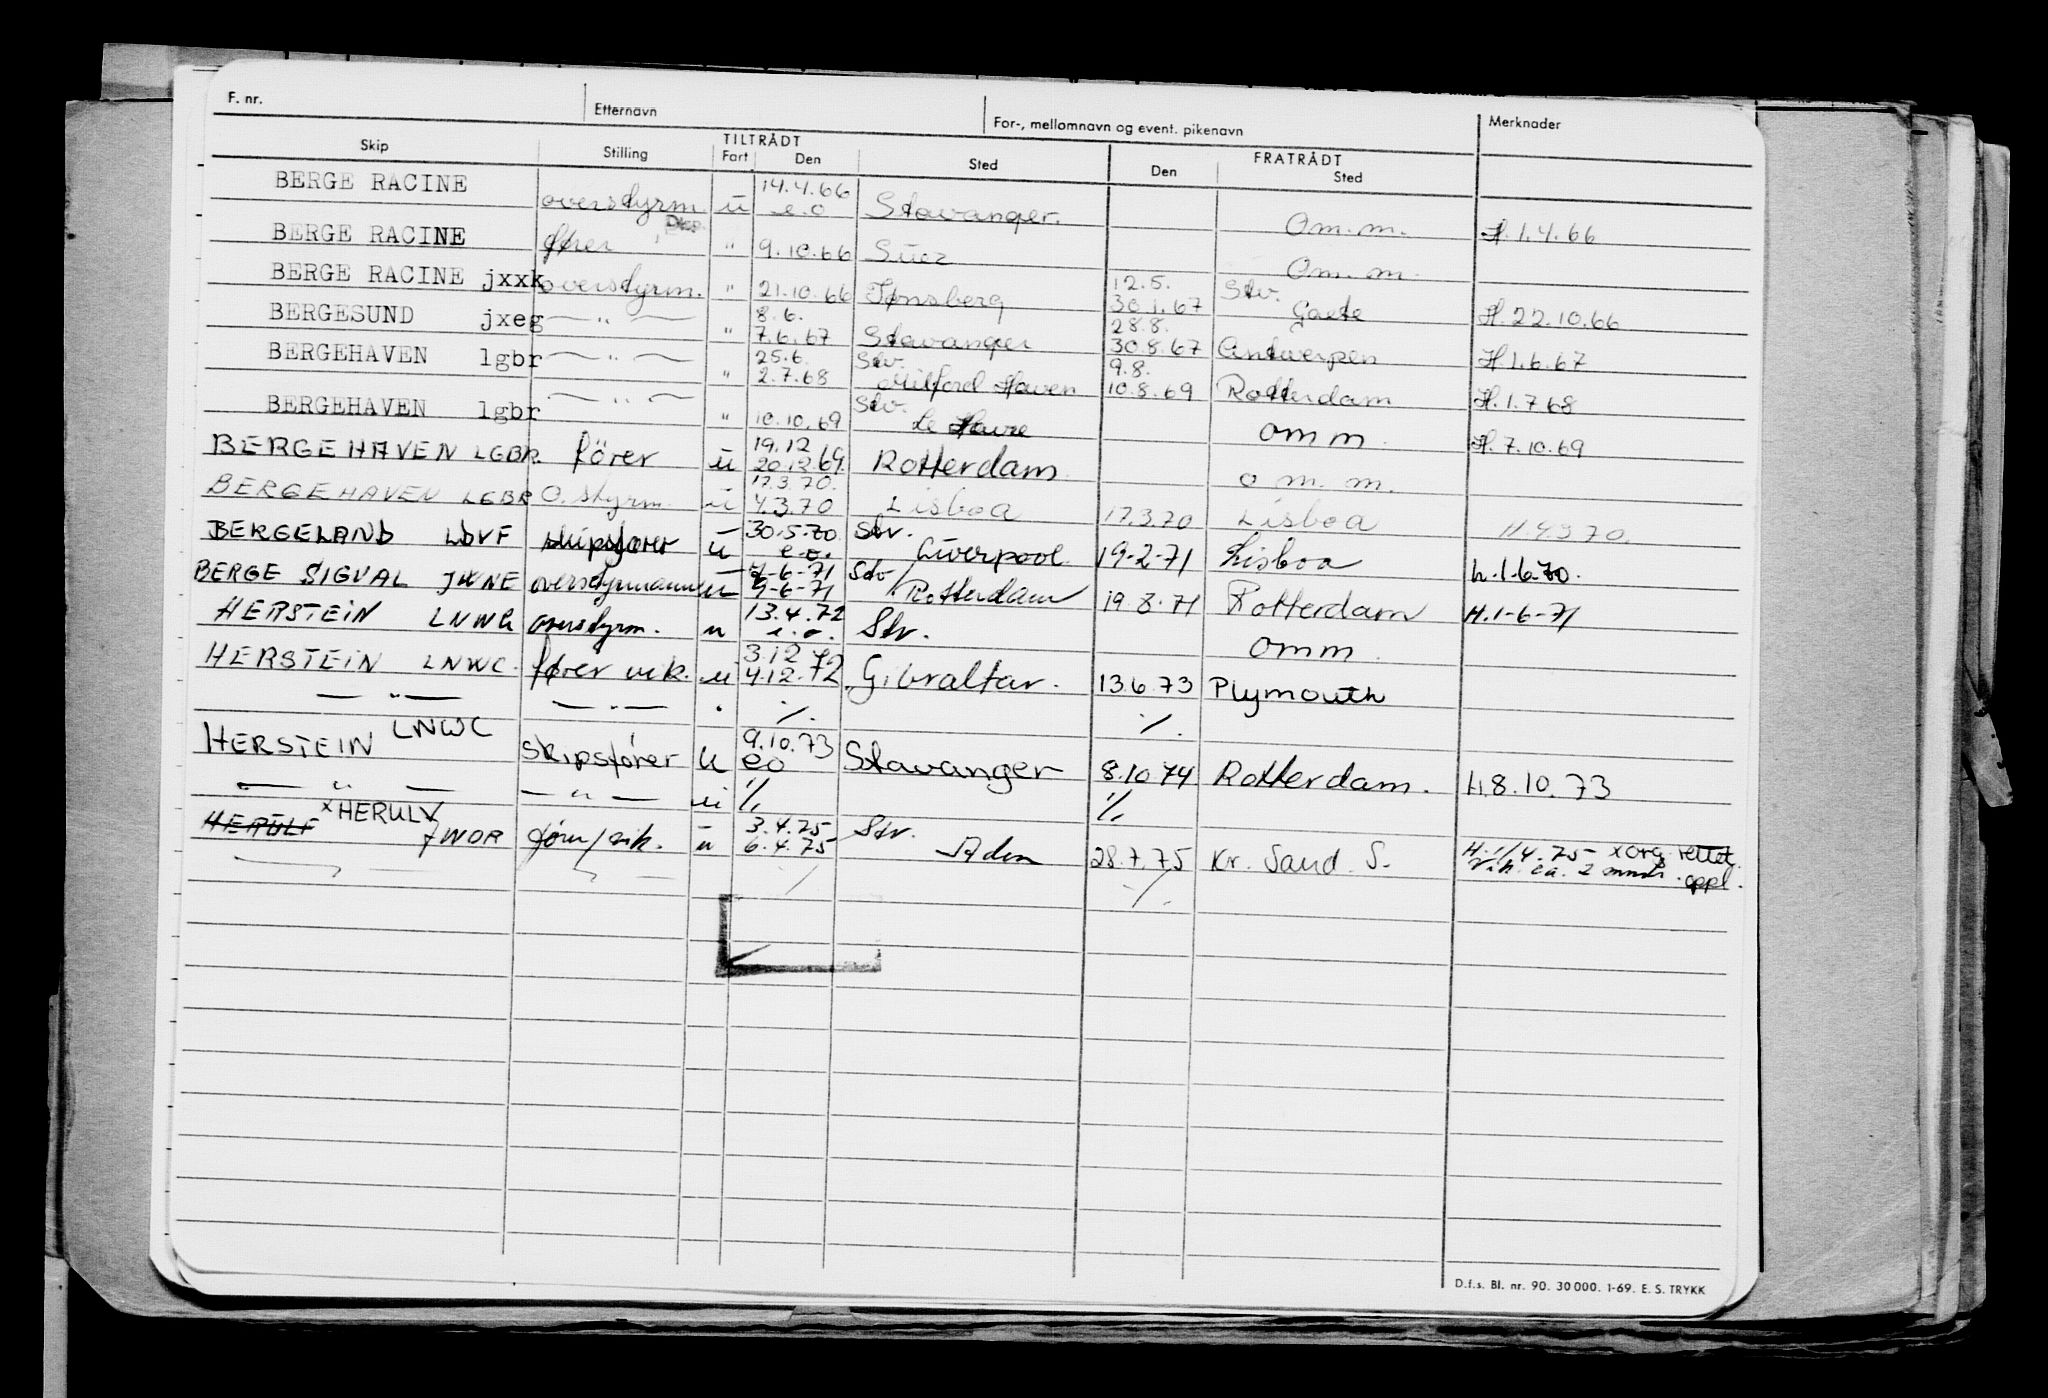 F. nr. Etternavn For-, mellomnavn og event. pikenavn Merknader
Skip Stilling TILTRÅDT FRATRÅDT
Fart Den Sted Den Sted
BERGE RACINE overstyrm. ū 14.4.66 e.o Stavanger. Om.m. H.1.4.66
BERGE RACINE fører Disp. " 9.10.66 Suez Om.m.
BERGE RACINE jxxk overstyrm. " 21.10.66 Tønsberg 12.5. 30.1.67 Stv. Gaete H.22.10.66
BERGESUND jxeg — " — " 8.6. 7.6.67 Stavanger 28.8. 30.8.67 Antwerpen H 1.6.67
BERGEHAVEN lgbr — " — " 25.6. 2.7.68 Stv. Milford Haven 9.8. 10.8.69 Rotterdam H.1.7 68
BERGEHAVEN lgbr — " — " 10.10.69 Stv. Le Havre omm. H.7.10.69
BERGEHAVEN LGBR. fører ū 19.12 20.12.69. Rotterdam. o m. m.
BERGEHAVEN LGBR O.styrm. ū 17.3.70. 4.3.70 Lisboa 17.3.70 Lisboa H.4.3 70.
BERGELAND LDVF skipsfører ū 30.5.70 e.o. Stv. Liverpool 19-2-71 Lisboa h.1.6.70.
BERGE SIGVAL JXNE overstyrmann u 7-6-71 9-6-71 Stv/ Rotterdam 19.8.71 Rotterdam H.1-6-71
HERSTEIN LNWC overstyrm. u 13.4.72 e.o. Stv. omm.
HERSTEIN LNWC. fører vik. ū 3.12 72 4.12.72 Gibraltar. 13.6.73 Plymouth
— " — — " — " ./. ./.
HERSTEIN LNWC skipsfører u 9.10.73 eo Stavanger 8.10 74 Rotterdam. H.8.10.73
— " — — " — ū ./. ./.
HERULF x HERULV JWOR fører/vik. ū 3.4.75 6.4.75 Stv. Aden 28.7.75 Kr. Sand S. H.1/4.75 x org. rettet
Vik. ca. 2 mndr. oppl.
— " — — " — ./. ./.
D.f.s. Bl. nr. 90. 30 000. 1-69. E. S. TRYKK